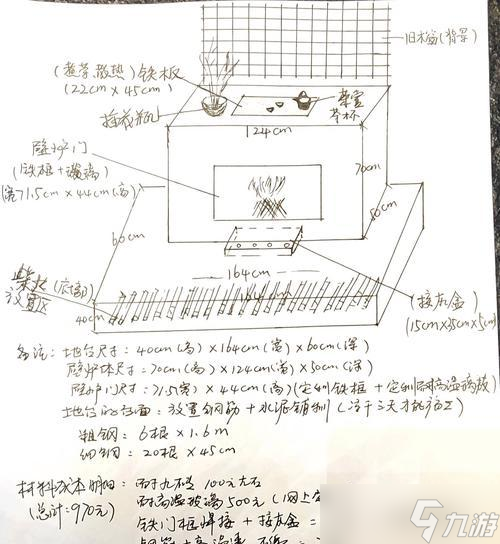 旧木窗(背景)
(煮茶散热)铁板
(22cm×45cm)
插花瓶
茶壶
茶杯
124cm
壁炉门
(铁框+玻璃)
(宽71.5cm×44cm(高)
70cm
50cm
60cm
164cm
柴火(底部)
放置区
40cm
(接灰盒)
(15cm×35cm×5cm)
备注:地台尺寸:40cm(高)×164cm(宽)×60cm(深)
壁炉体尺寸:70cm(高)×124cm(宽)×50cm(深)
壁炉门尺寸:71.5(宽)×44cm(高)(定制铁框+定制耐高温玻璃)
地台的台面:放置钢筋+水泥铺制
粗钢:6根×1.6m
细钢:20根×45cm
材料成本明细:耐火砖100元左右
(总计:970元)
耐高温玻璃500元(网上
铁门框焊接+接灰盒=
九游